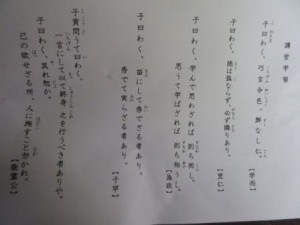 講堂学習
子曰わく、巧言令色、鮮なし仁。
【学而】
子曰わく、徳は孤ならず、必ず隣りあり。
【里仁】
子曰わく、学んで思わざれば則ち罔し。
思うて学ばざれば則ち殆うし。
【為政】
子曰わく、苗にして秀でざる者あり。
秀でて実らざる者あり。
【子罕】
子貢問うて曰わく、
一言にして以て終身之を行うべき者ありや。
子曰わく、其れ恕か。
己の欲せざる所、人に施すこと勿かれ。
【衛霊公】